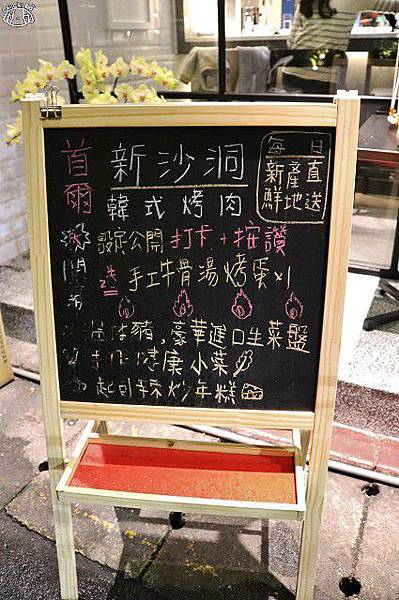 首爾
新沙洞
韓式烤肉
每日
新鮮產地直送
設定公開 打卡+按讚
送 手工牛骨湯烤蛋x1
豬,豪華進口生菜盤
手作健康小菜
起司辣炒年糕